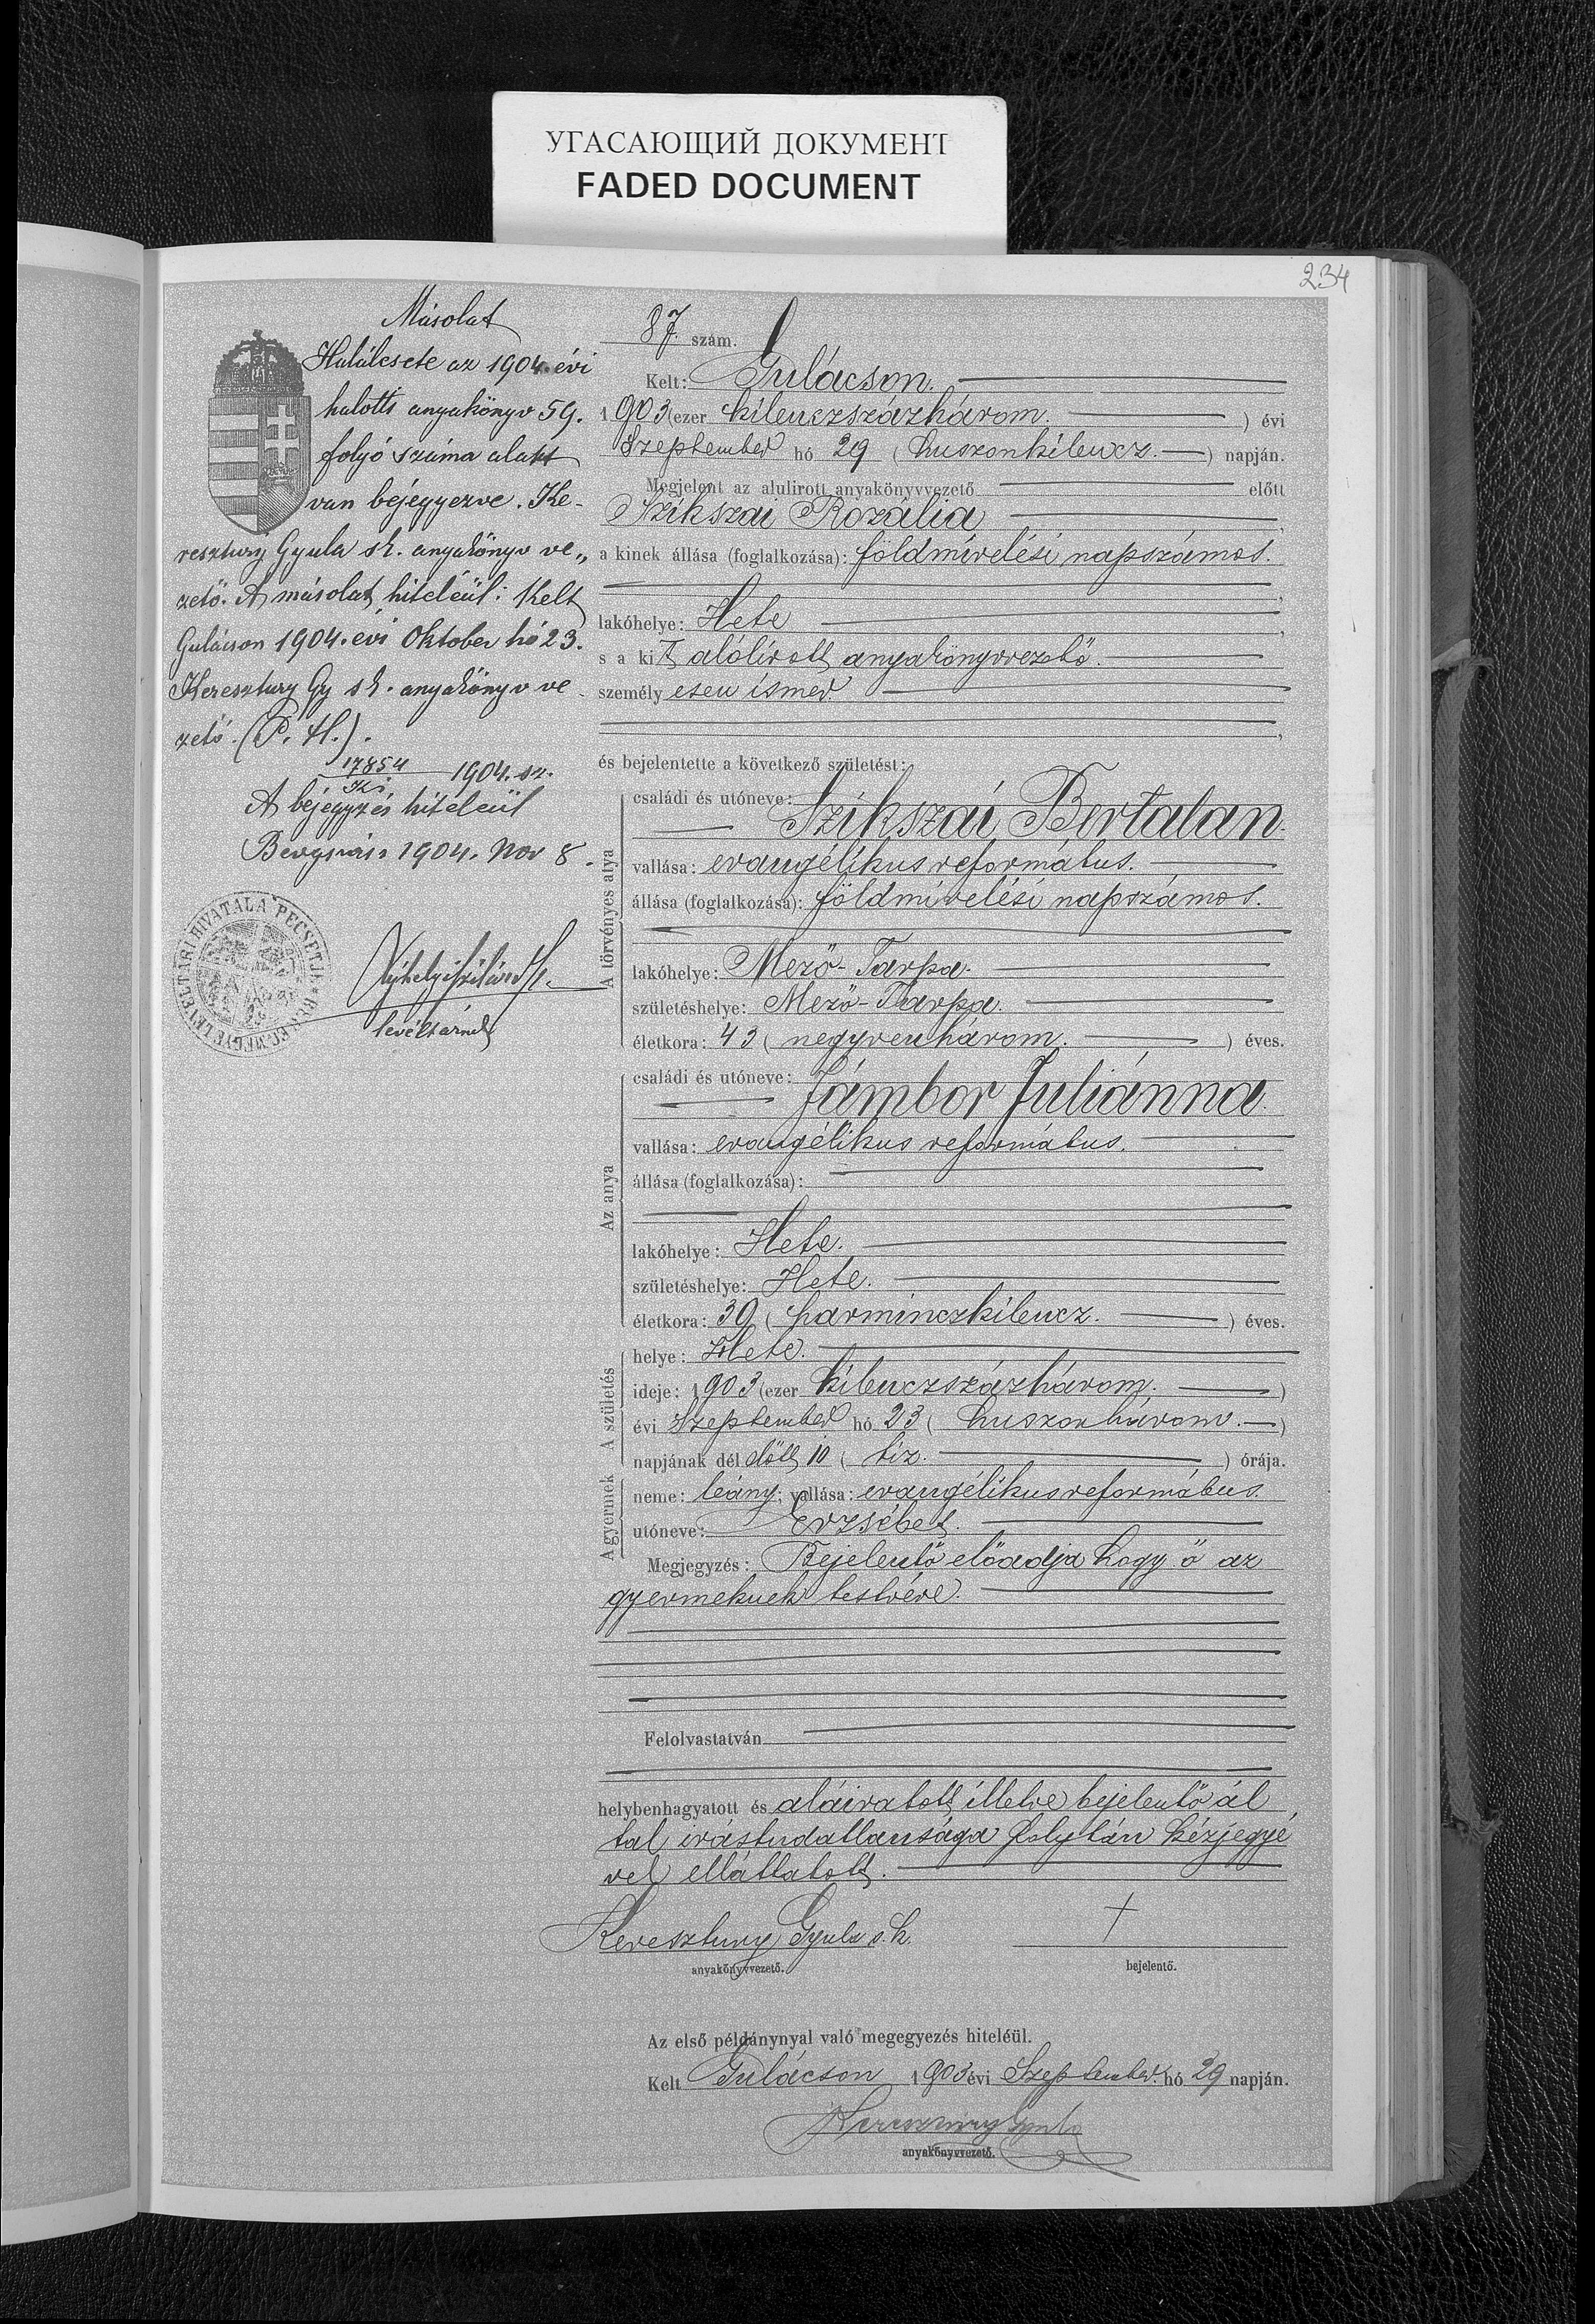 УГАСАЮЩИЙ ДОКУМЕНТ
FADED DOCUMENT
234
Másolat
Halálesete az 1904. évi
halotti anyakönyv 59.
folyó száma alatt
van bejegyezve. Ke-
resztury Gyula sk. anyakönyv ve„
zető. A másolat hiteléül: Kelt
Gulácson 1904. évi Oktober hó 23.
Keresztury Gy sk. anyakönyv ve-
zető. (P. H.).
17854 1904. sz.
A bejegyzés hiteléül
Beregszász 1904. Nov 8.
levéltárnok
87. szám.
Kelt: Gulácson.
1903 (ezer kilenczszázhárom. ) évi
Szeptember hó 29 (huszonkilencz. ) napján.
Megjelent az alulirott anyakönyvvezető előtt
Szikszai Rozália ,
a kinek állása (foglalkozása): földmívelési napszámos.
,
lakóhelye: Hete ,
s a kit alólirott anyakönyvvezető.
személy esen ismer.
,
és bejelentette a következő születést:
A törvényes atya
családi és utóneve:
Szikszai Bertalan.
vallása: evangélikus református.
állása (foglalkozása): földmívelési napszámos.
lakóhelye: Mező-Tarpa.
születéshelye: Mező-Tarpa.
életkora: 43 (negyvenhárom. ) éves.
Az anya
családi és utóneve:
Jámbor Juliánna.
vallása: evangélikus református.
állása (foglalkozása):
lakóhelye: Hete.
születéshelye: Hete.
életkora: 39 (harminczkilencz. ) éves.
A születés
helye: Hete.
ideje: 1903 (ezer kilenczszázhárom. )
évi Szeptember hó 23 (huszonhárom. )
napjának dél előtt 10 (tiz. ) órája.
A gyermek
neme: leány; vallása: evangélikus református.
utóneve: Erzsébet.
Megjegyzés: Bejelentő előadja hogy ő az
gyermeknek testvére.
Felolvastatván
helybenhagyatott és aláiratott illetve bejelentő ál
tal irástudatlansága folytán kézjegyé
vel elláttatott.
Keresztury Gyula s. k. +
anyakönyvvezető. bejelentő.
Az első példánynyal való megegyezés hiteléül.
Kelt Gulácson 1903 évi Szeptember. hó 29 napján.
Keresztury Gyula
anyakönyvvezető.